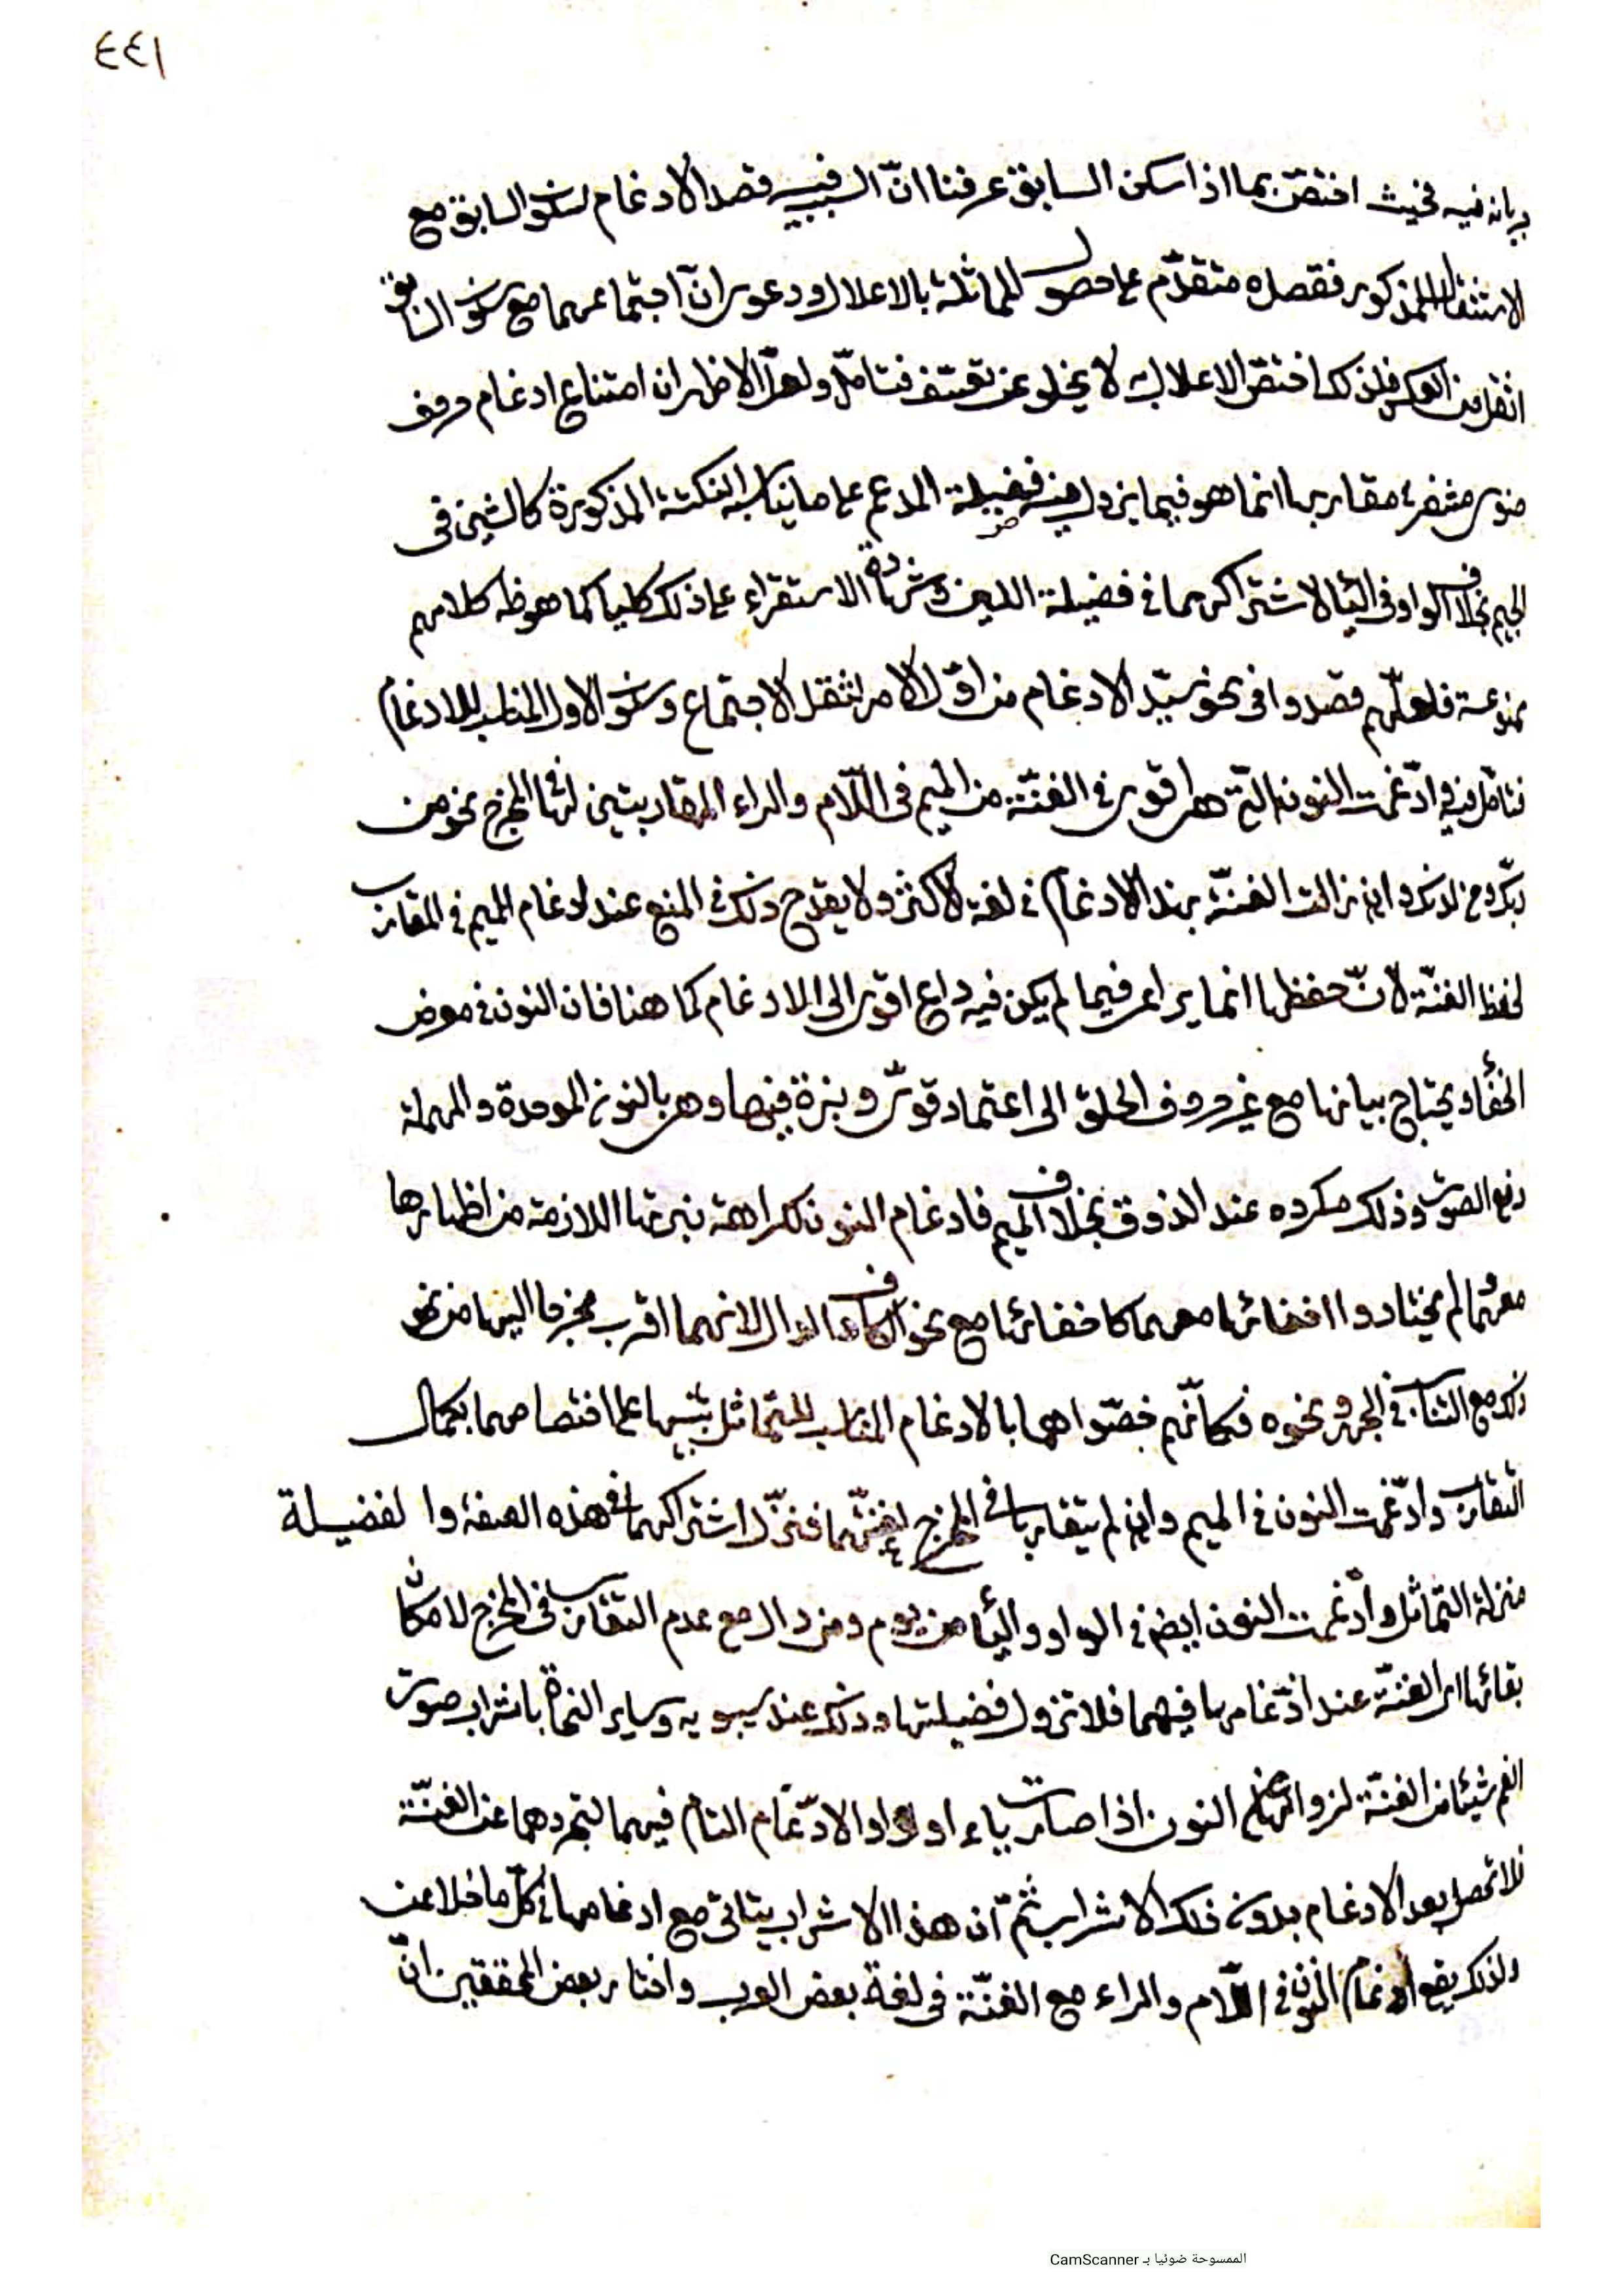 ٤٤١
جريانه فيه فحيث اختصّ بما اذا سكن السابق عرفنا انّ السبب فيه قصد الادغام لسكون السابق مع
الاستثقال المذكور فقصده متقدّم على حصول المماثلة بالاعلال ودعوى انّ اجتماعهما مع سكون السابق
اثقل من العكس فلذلك اختصّ الاعلال به لا يخلو عن تعسّف فتأمّل ولعلّ الاظهر ان امتناع ادغام حروف
ضوى مشفر مقاربها انما هو فيما يزول فيه فضيلة المدغم على ما يناسبه النكتة المذكورة كالشين فى
الجيم بخلاف الواو فى الياء لاشتراكهما فى فضيلة اللين وشهادة الاستقراء على ذلك كليا كما هو ظ كلامهم
ممنوعة فلعلّهم قصدوا فى نحو سيّد الادغام من اوّل الامر لثقل الاجتماع وسكون الاول المناسب للادغام
فتأمّل فيه وادّغمت النون التى هى اقوى فى الغنّة من الميم فى اللّام والراء المقاربتين لها فى المخرج نحو من
ربّك ومن لدنك وان زالت الغنّة بهذا الادغام فى لغة الاكثر ولا يقدح ذلك فى المنع عند ادغام الميم فى المقارب
لحفظ الغنّة لانّ حفظها انما يراعى فيما لم يكن فيه داع اقوى الى الادغام كما هنا فان النون فى موضع
الخفاء ويحتاج بيانها مع غير حروف الحلق الى اعتماد قوىّ ونبرة فيها وهى بالنون الموحدة والمهملة
رفع الصوت وذلك مكروه عند الذوق بخلاف الميم فادغام النون لكراهة نبرتها اللازمة من اظهارها
معهما لم يختاروا اخفائها معهما كاخفائها مع نحو الكاف والدال لانهما اقرب مخرجا اليها من نحو
ذلك مع التناسب فى الجهر ونحوه فكانّهم خصّوا هما بالادغام المناسب للتماثل تنبيها على اختصاصهما بكمال
التقارب وادّغمت النون فى الميم وان لم يتقاربا فى المخرج لغنّتهما فنزّل اشتراكهما فى هذه الصفة والفضيلة
منزلة التماثل وادّغمت النون ايض فى الواو والياء من يوم ومن وال مع عدم التقارب فى المخرج لامكان
بقائها اى الغنّة عند ادّغامها فيهما فلا تزول فضيلتها وذلك عند سيبويه وساير النحاة باشراب صوت
الفم شيئا من الغنّة لزوالها عن النون اذا صارت ياء او واوا والادّغام التام فيهما لتجردهما عن الغنّة
فلا تحصل بعد الادغام بدون ذلك الاشراب ثمّ ان هذا الاشراب يتاتى مع ادغامها فى كلّ ما خلا عن
ولذلك يقع ادغام النون فى اللّام والراء مع الغنّة فى لغة بعض العرب واختار بعض المحققين انّ
الممسوحة ضوئيا بـ CamScanner